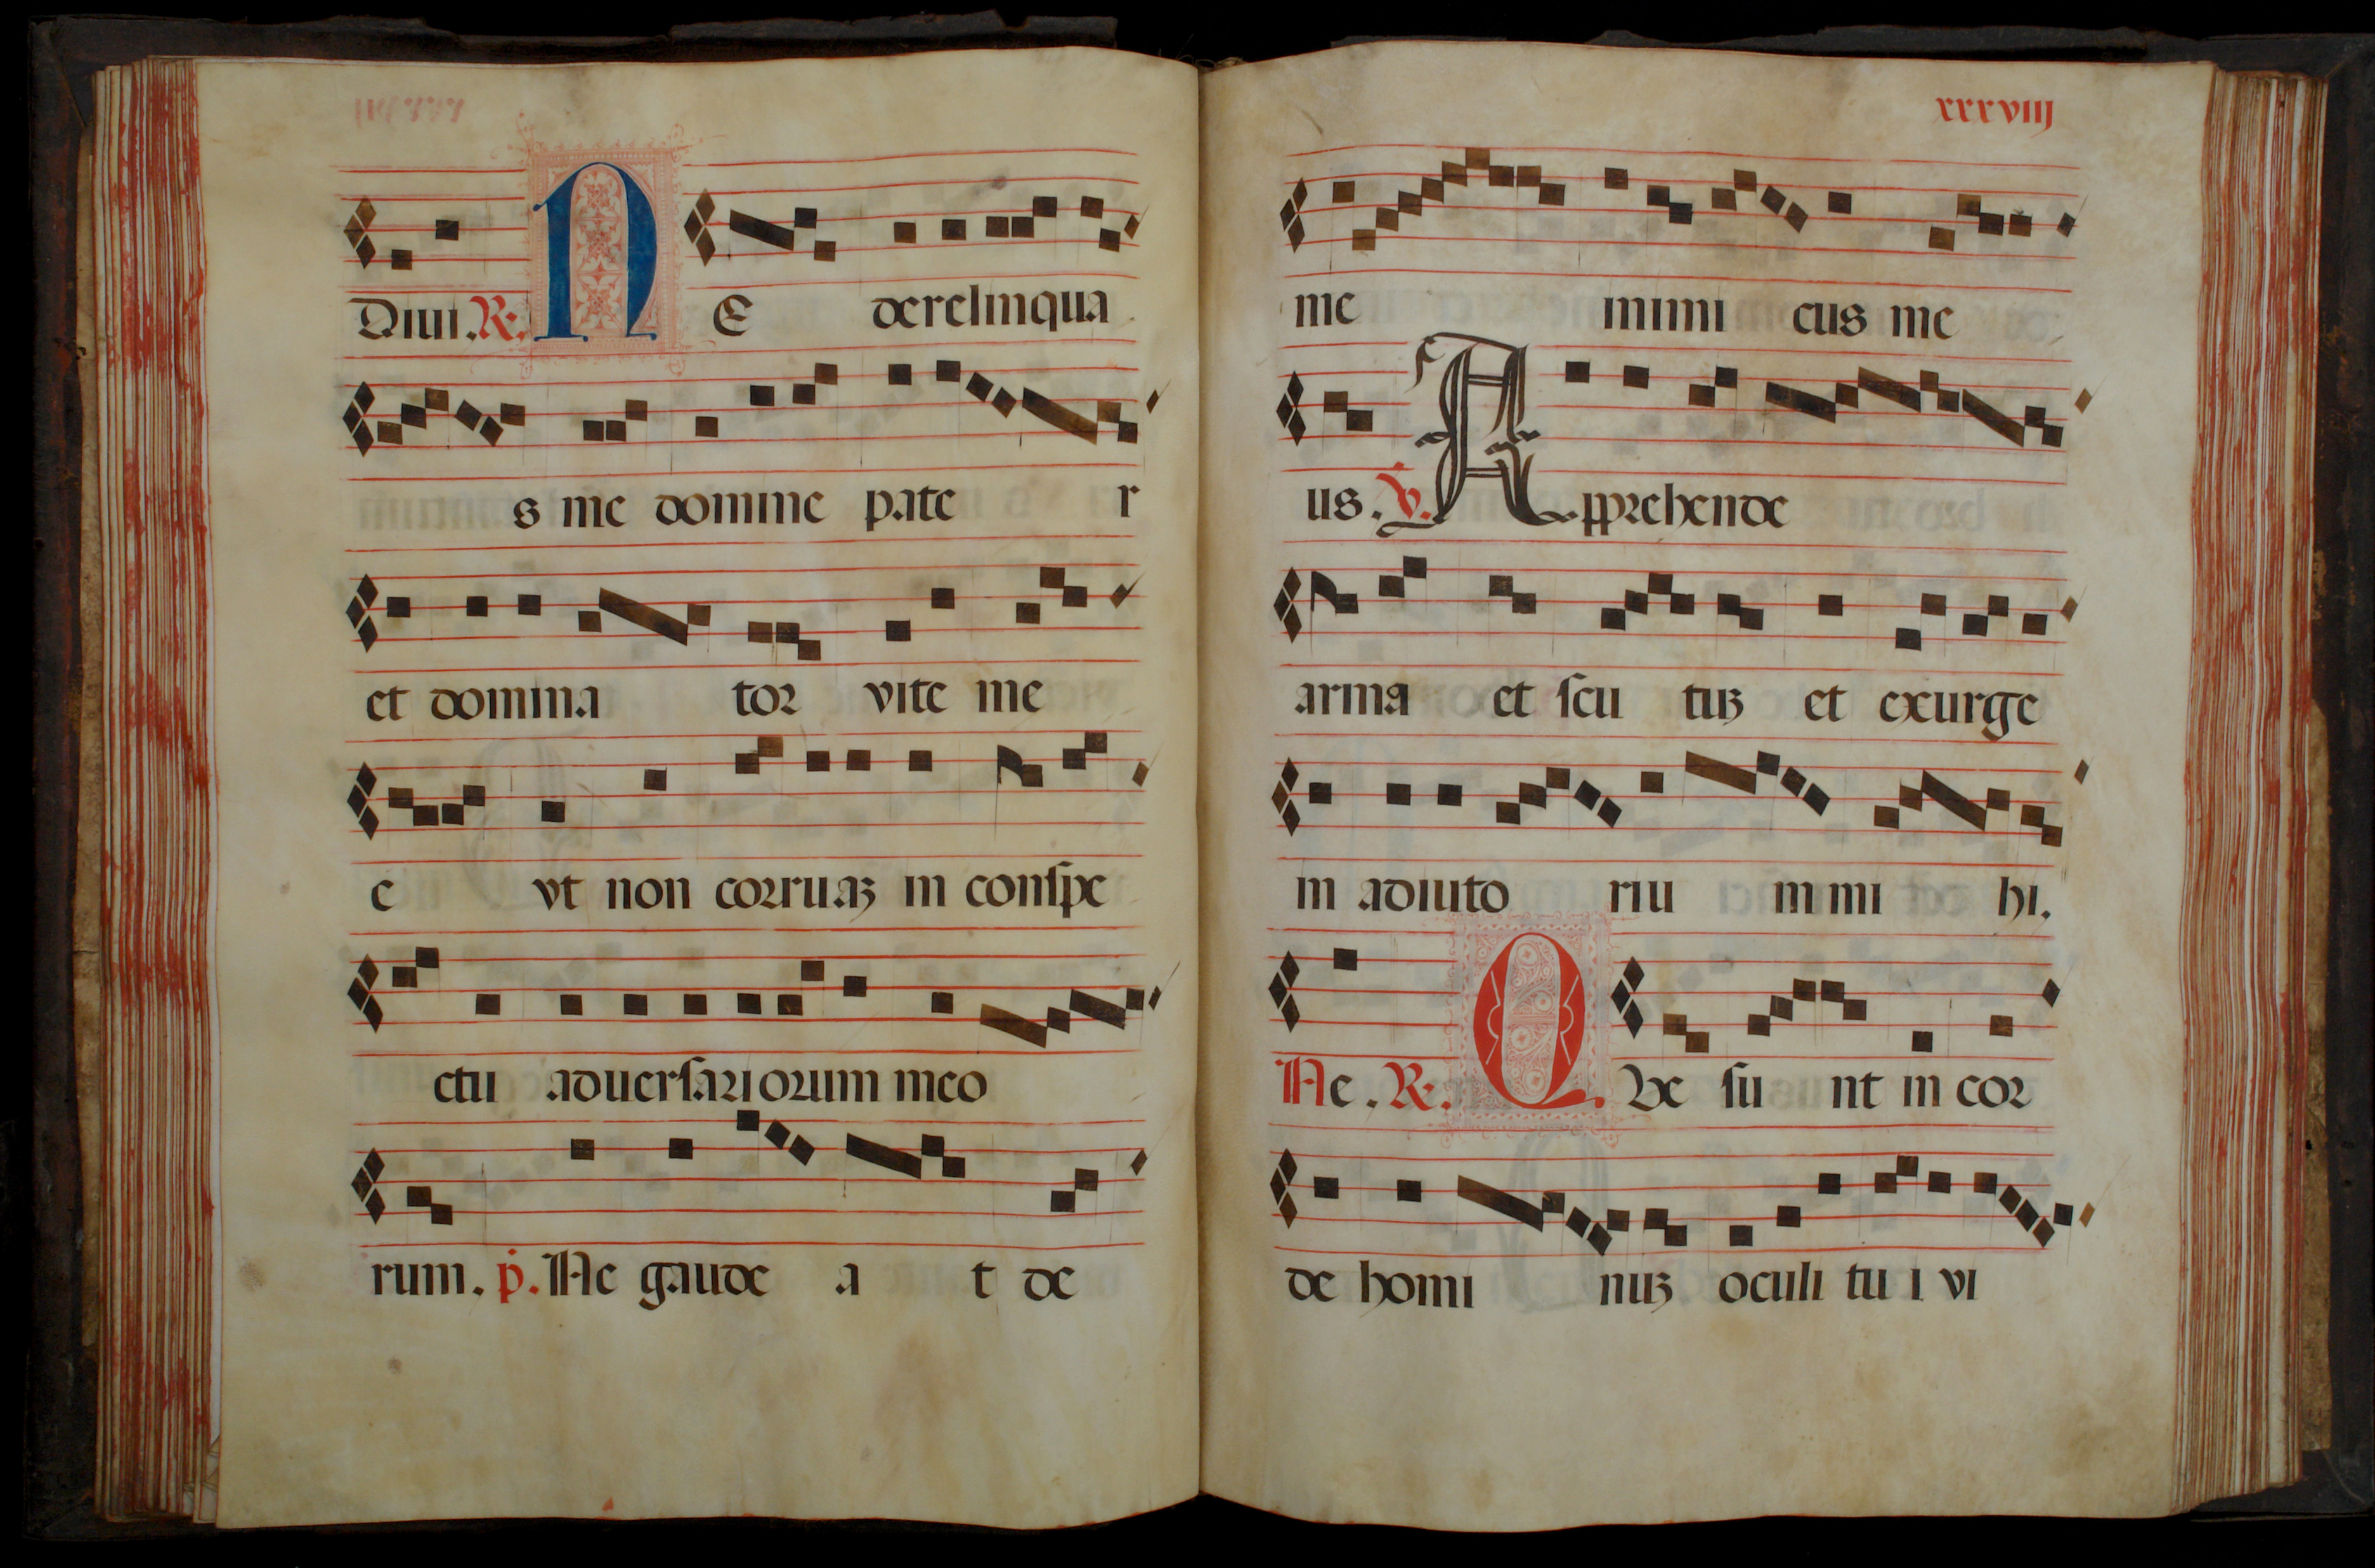 Diui. R. NE derelinqua
s me domine pate r
et domina tor vite me
e vt non corruaʒ in conſpe
ctu aduerſariorum meo
rum. p. Ne gaude a t de
xxxviiij
me inimi cus me
us. v. Apprehende
arma et ſcu tuʒ et exurge
in adiuto riu m mi hi.
Ne. R. QVe ſu nt in cor
de homi nuʒ oculi tu i vi